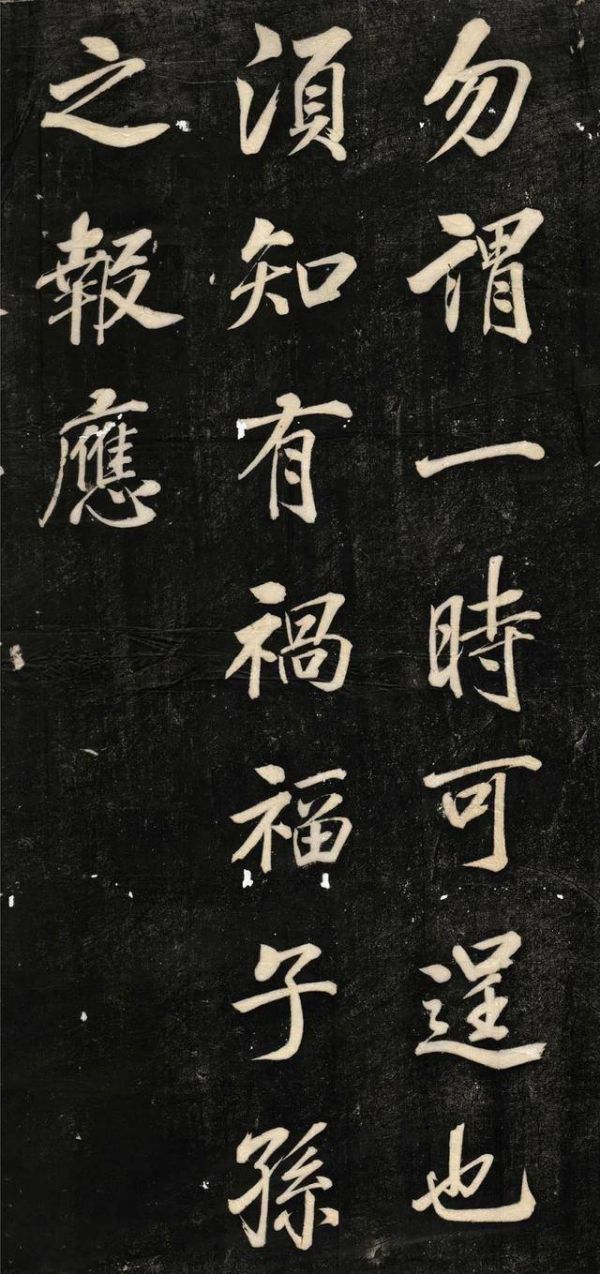 勿謂一時可逞也
湏知有禍福子孫
之報應